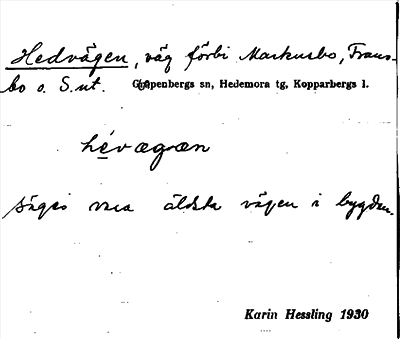 Hedvägen, väg förbi Markusbo, Frans-
bo o. S.nt. Garpenbergs sn, Hedemora tg, Kopparbergs l.
hévægæn
säges vara äldsta vägen i bygden.
Karin Hessling 1930